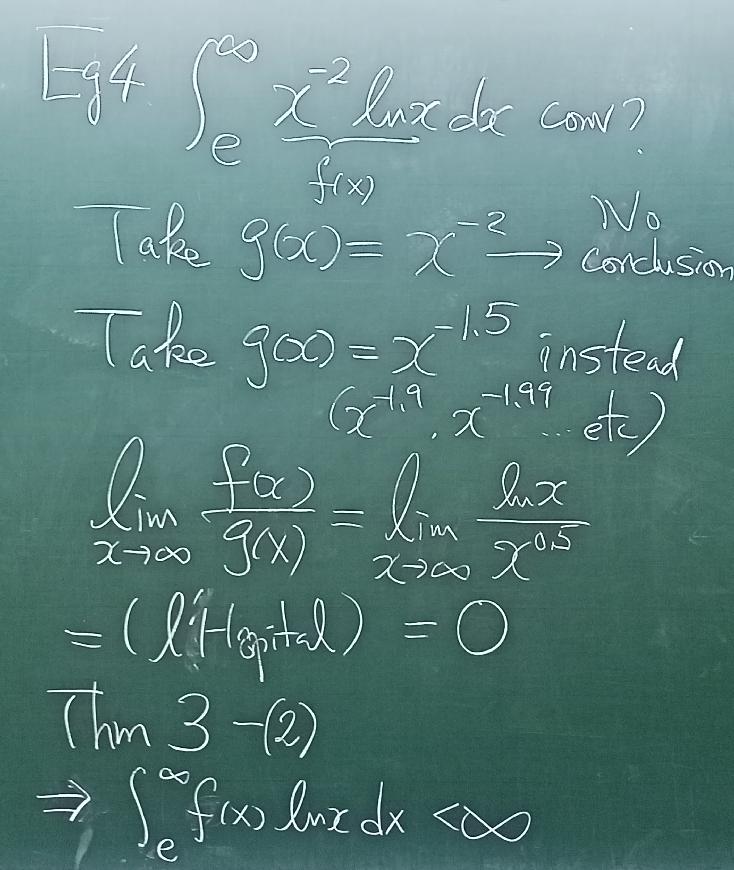 Eg 4. ∫_e^∞ x^{-2} ln x dx conv?
f(x)
Take g(x) = x^{-2} → No conclusion
Take g(x) = x^{-1.5} instead
(x^{-1.9}, x^{-1.99} ... etc)
lim_{x→∞} f(x)/g(x) = lim_{x→∞} ln x / x^{0.5}
= (l'Hopital) = 0
Thm 3 -(2)
⇒ ∫_e^∞ f(x) ln x dx < ∞